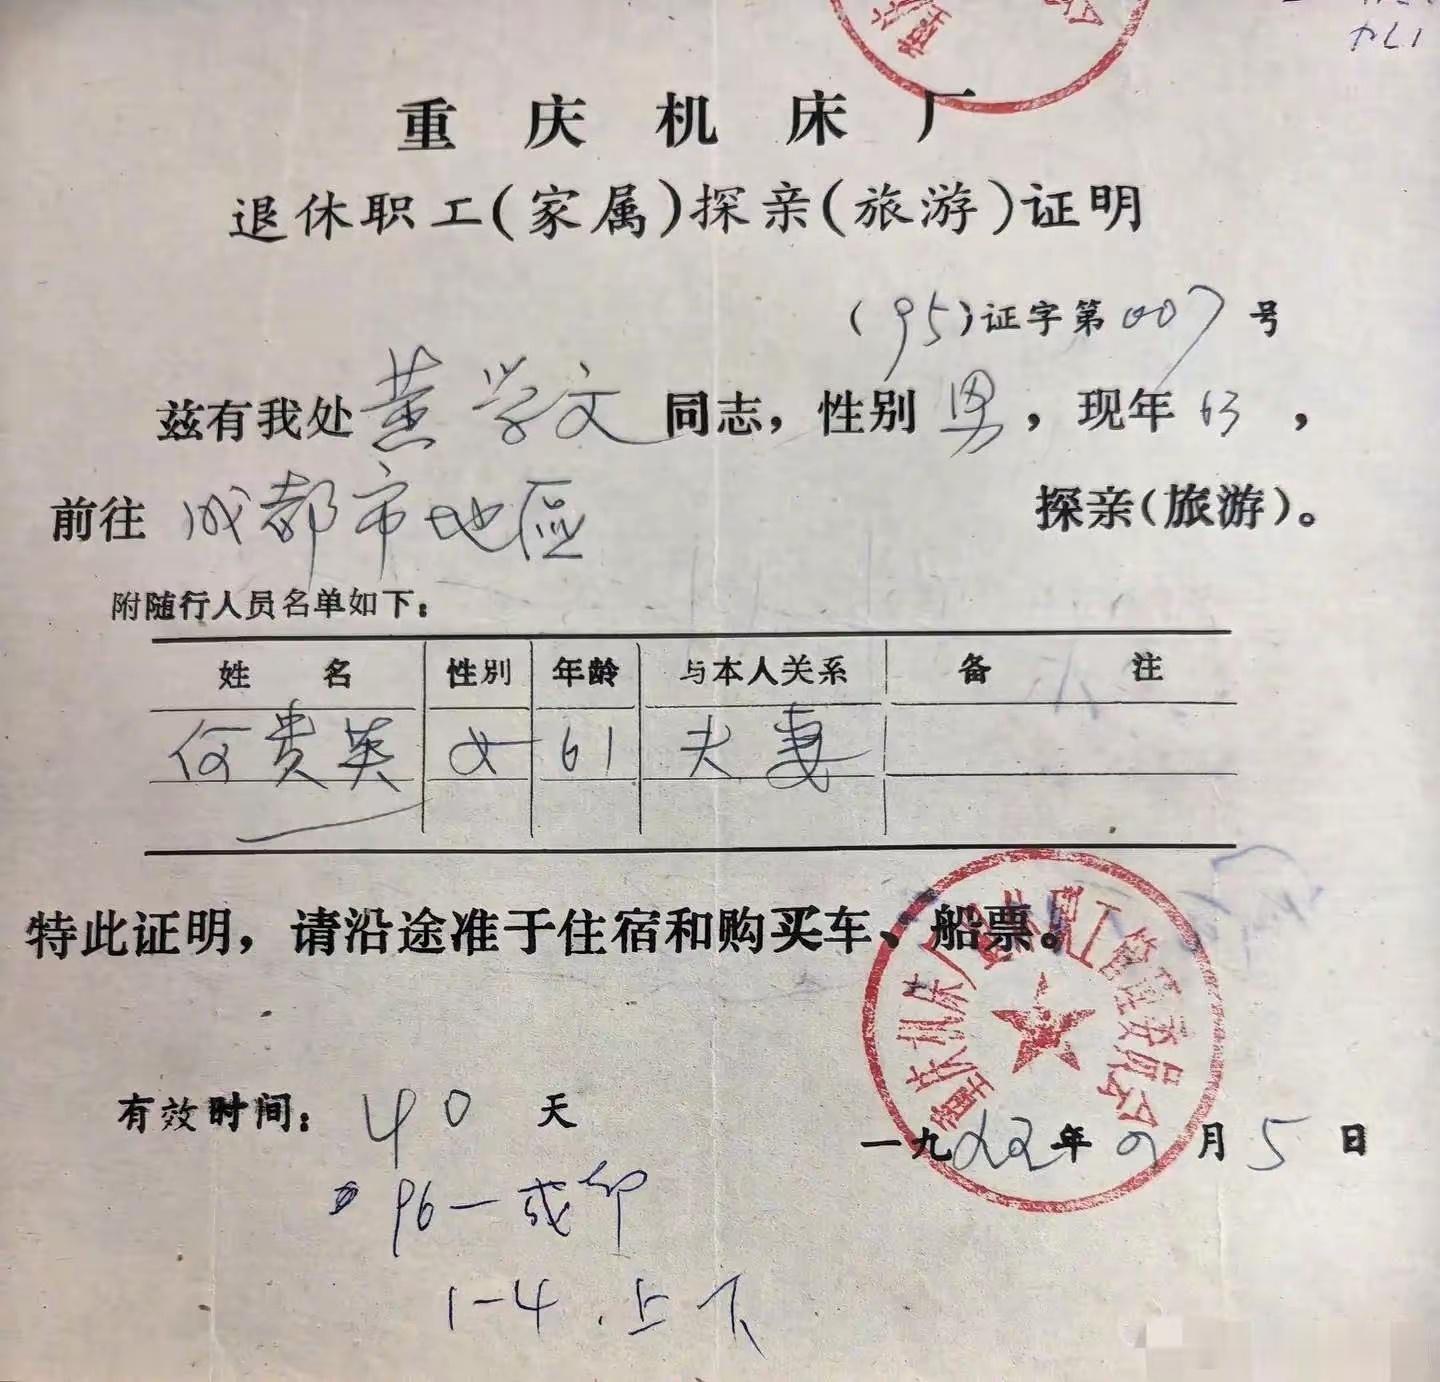 重庆机床厂
退休职工(家属)探亲(旅游)证明
(95)证字第007号
兹有我处黄学文同志，性别男，现年63，
前往成都市地区 探亲(旅游)。
附随行人员名单如下：
姓名 性别 年龄 与本人关系 备注
何贵英 女 61 夫妻
特此证明，请沿途准于住宿和购买车、船票。
重庆机床厂 管理委员会
有效时间：40天
一九 年 月5日
96一成都
1-4.上下